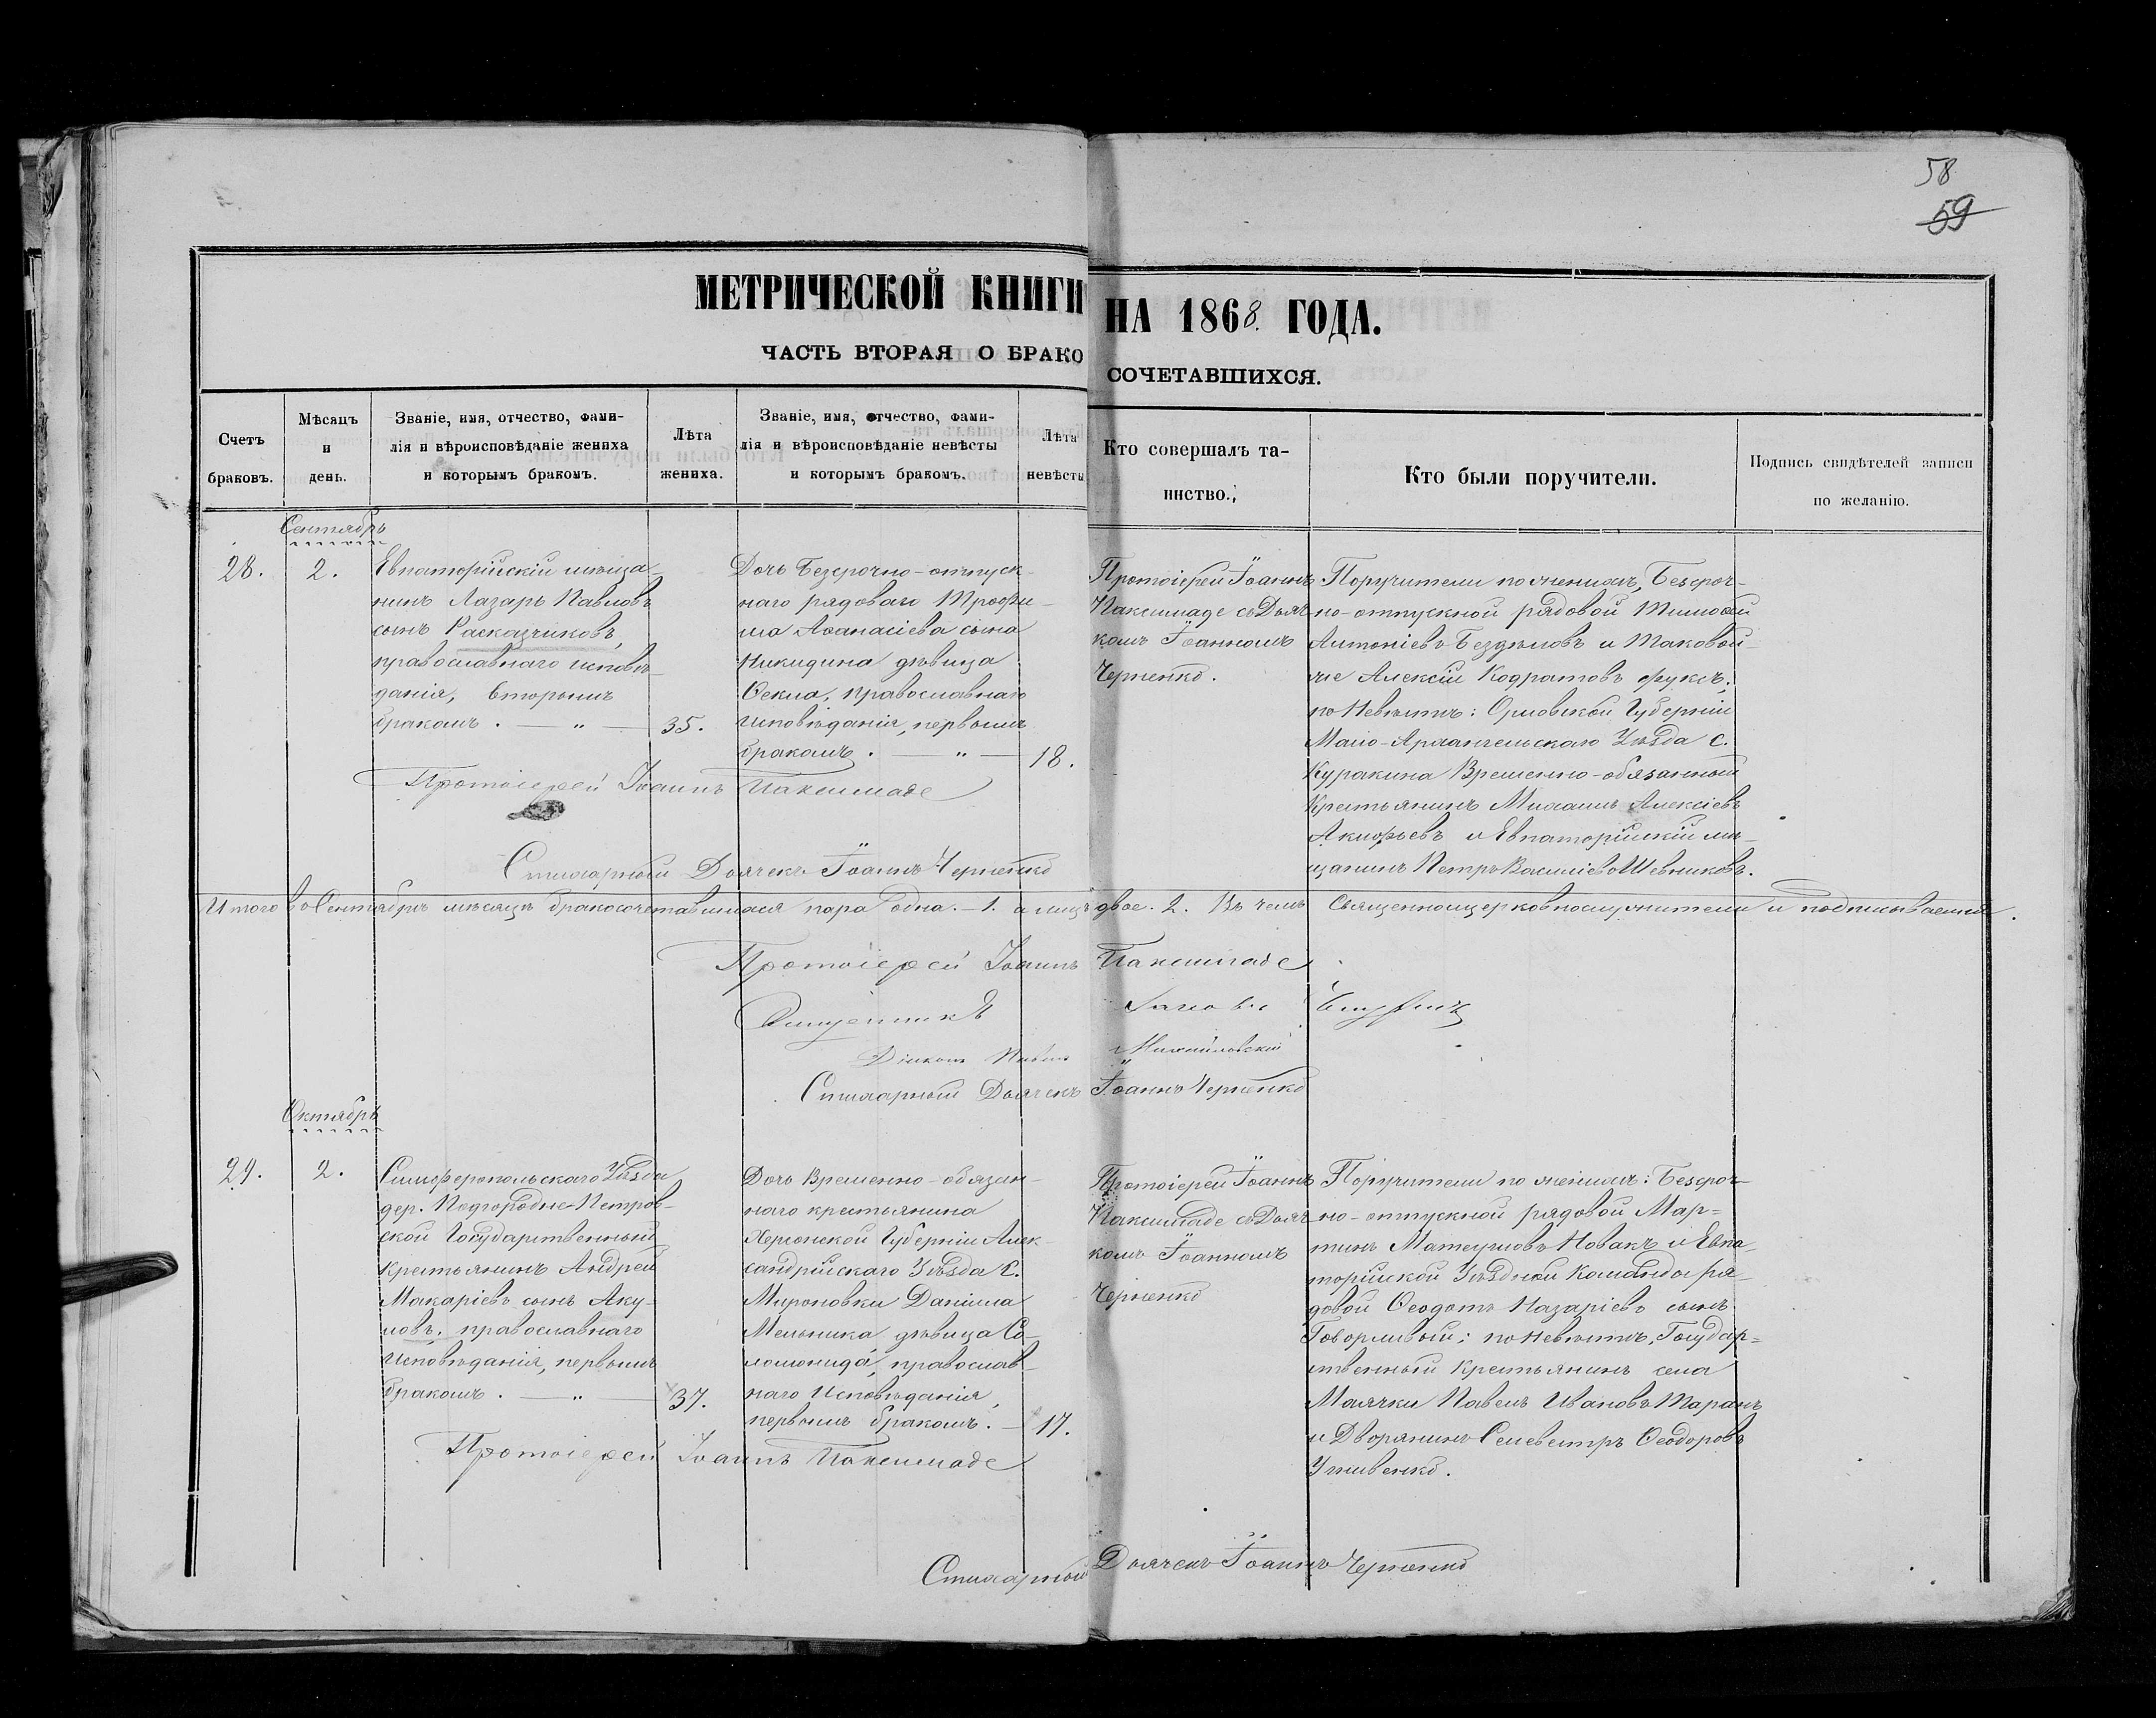 58
59
МЕТРИЧЕСКОЙ КНИГИ НА 1868. ГОДА.
ЧАСТЬ ВТОРАЯ О БРАКОСОЧЕТАВШИХСЯ.
Счетъ браковъ.
Мѣсяцъ и день.
Званіе, имя, отчество, фами-
лія и вѣроисповѣданіе жениха
и которымъ бракомъ.
Лѣта жениха.
Званіе, имя, отчество, фами-
лія и вѣроисповѣданіе невѣсты
и которымъ бракомъ.
Лѣта невѣсты
Кто совершалъ та-
инство.
Кто были поручители.
Подпись свидѣтелей записи
по желанію.
Сентябрь
28.
2.
Евпаторійскій мѣща-
нинъ Лазарь Павловъ
сынъ Расказчиковъ,
православнаго исповѣ-
данія, вторымъ
бракомъ. — „ —
35.
Дочь Безсрочно-отпуск-
наго рядоваго Трофи-
ма Аѳанасіева сына
Никидина дѣвица
Ѳекла, православнаго
исповѣданія, первымъ
бракомъ. „ —
18.
Протоіерей Іоаннъ
Паксимаде съ Дьяч
комъ Іоанномъ
Черненко.
Поручители по женихѣ, Безсроч-
но-отпускной рядовой Тимофей
Антоніевъ Бездѣловъ и таковой
же Алексій Кодратовъ Фуксъ;
по Невѣстѣ: Орловской Губерніи
Мало-Архангельскаго Уѣзда с.
Куракина Временно-обязанный
Крестьянинъ Михаилъ Алексіевъ
Акифьевъ и Евпаторійскій мѣ-
щанинъ Петръ Василіевъ Шевниковъ.
Протоіерей Іоаннъ Паксимаде
Стихарный Дьячекъ Іоаннъ Черненко
Итого въ Сентябрѣ мѣсяцѣ бракосочетавшихся пара одна. — 1. а лицъ двое. 2. Въ чемъ Священноцерковнослужители и подписываемся.
Протоіерей Іоаннъ Паксимаде
Священникъ
Діаконъ Павелъ Михайловскій
Стихарный Дьячекъ Іоаннъ Черненко
Октябрь
29.
2.
Симферопольскаго Уѣзда
дер. Подгородне-Петров-
ской Государственный
Крестьянинъ Андрей
Макаріевъ сынъ Аку-
ловъ, православнаго
Исповѣданія, первымъ
бракомъ. — „ —
37.
Дочь Временно-обязан-
наго крестьянина
Херсонской Губерніи Алек-
сандрійскаго Уѣзда с.
Мироновки Даніила
Мельника, дѣвица Со-
ломонида, православ-
наго Исповѣданія,
первымъ бракомъ. —
17.
Протоіерей Іоаннъ
Паксимаде съ Дьяч
комъ Іоанномъ
Черненко
Поручители по женихѣ: Безсроч-
но-отпускной рядовой Мар-
тинъ Матеушовъ Новакъ и Евпа-
торійской Уѣздной Команды ря-
довой Ѳеодотъ Назаріевъ сынъ
Говорливый; по Невѣстѣ, Государ-
ственный Крестьянинъ села
Маячки Павелъ Ивановъ Таранъ
и Дворянинъ Селевестръ Ѳеодоровъ
Уживенко.
Протоіерей Іоаннъ Паксимаде
Стихарный Дьячекъ Іоаннъ Черненко